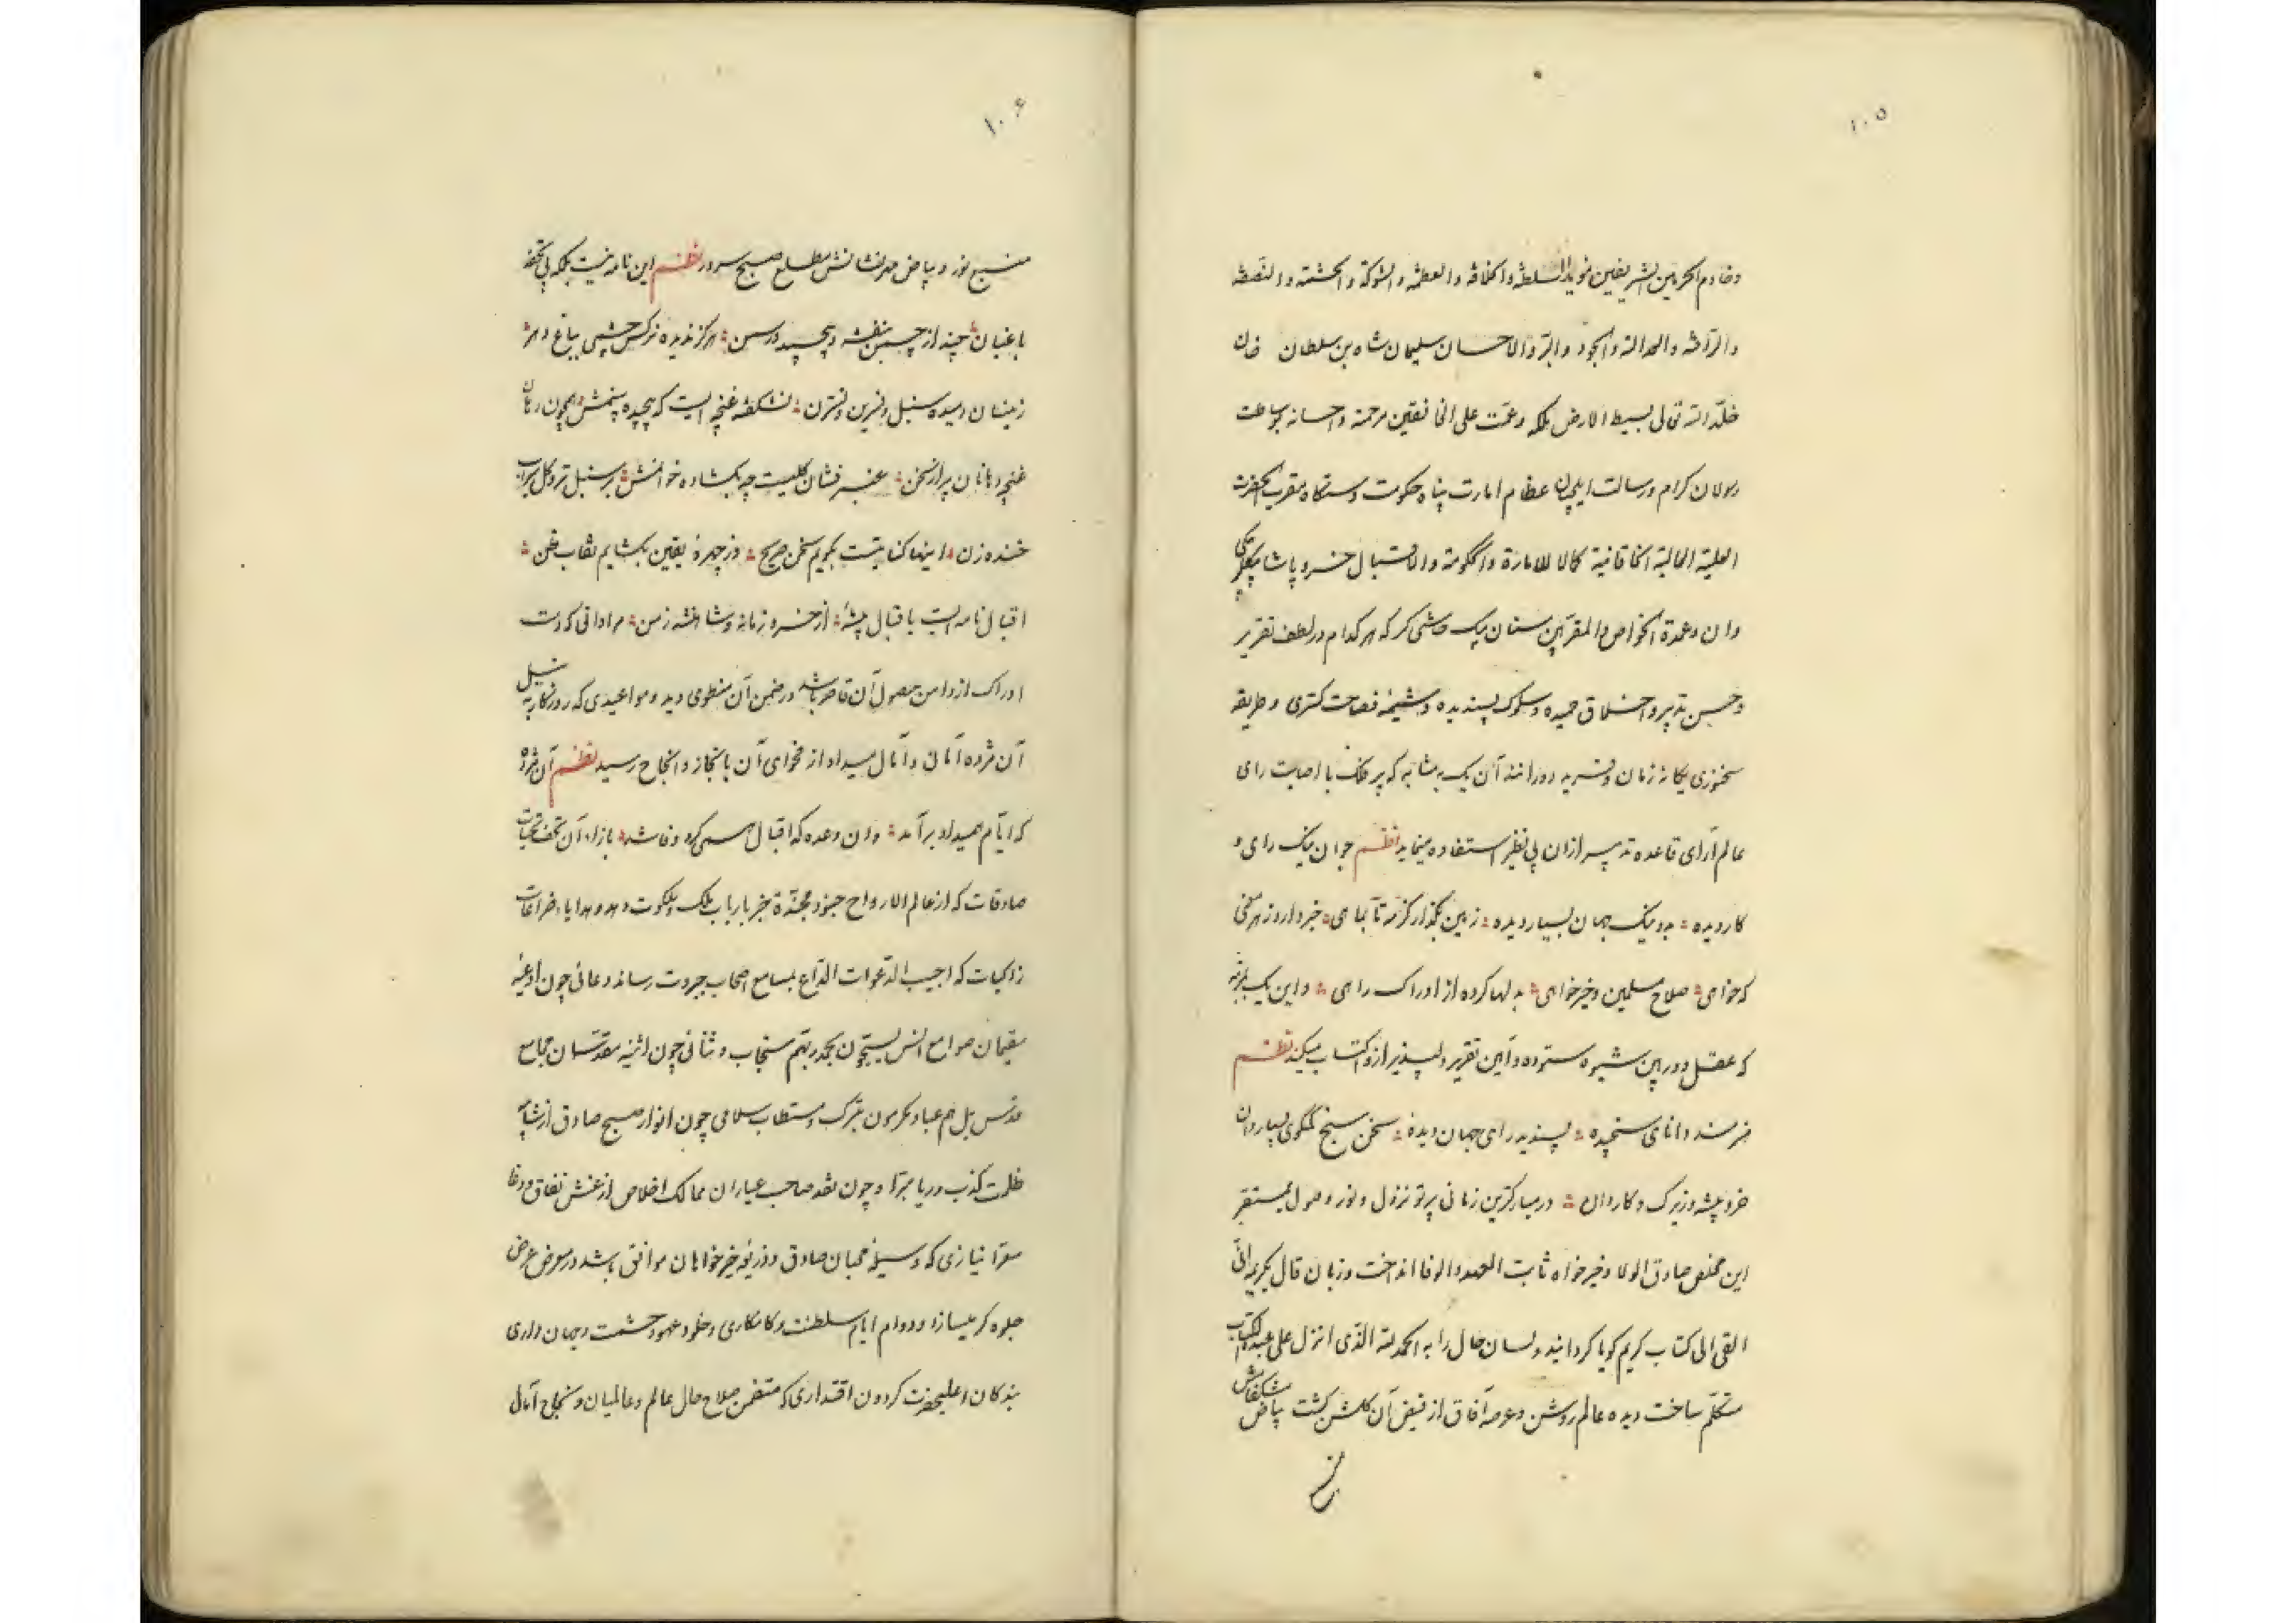 ۱۰۵
وخادم الحرمین الشریفین مؤید السلطنة والخلافة والعظمة والشوکة والحشمة والنصفة
والرأفة والعدالة والجود والبر والاحسان سلیمان شاه بن سلطان خان
خلد الله تعالی بسیط الارض ملکه وعمت علی الخافقین مرحمته واحسانه بوساطت
رسولان کرام ورسالت ایلچیان عظام امارت پناه حکومت دستکاه مقرب الحضرت
العلیة العالیة الخاقانیة کمالا للامارة والحکومة والاقبال خسرو پاشا
وان وعمدة الخواص والمقربین سنان بیک که هر کدام در لطف تقریر
وحسن تدبیر واخلاق حمیده وسلوک پسندیده وشیمۀ فصاحت کستری وطریقه
سخنوری یکانۀ زمان وفرید دورانند آن یک بمثابه که پیر فلک با اصابت رای
عالم آرای قاعده تدبیر ازان بی نظیر استفاده مینماید نظم جوان نیک رای و
کاردیده ؛ بد ونیک جهان بسیار دیده ؛ زمین بکذار کز مه تا بماهی ؛ خبر دارد ز هر معنی
که خواهی ؛ صلاح مسلمین وخیرخواهی ؛ بدلها کرده از ادراک راهی ؛ واین یک بمرتبه
که عقل دوربین شیوه ستوده وآیین تقریر دلپذیر ازو اکتساب میکند نظم
هنرمند ودانای سنجیده ؛ پسندیدر ای جهان دیدۀ ؛ سخن سنج کم کوی بسیاردان
خردپیشه وزیرک وکاردان ؛ در مبارکترین زمانی پرتو نزول ونور وصول بمستقر
این مخلص صادق الولا وخیرخواه ثابت العهد والوفا انداخت وزبان قال بکریمه انی
القی الی کتاب کریم کویا کردانید ولسان حال را به الحمد لله الذی انزل علی عبده الکتاب
متکلم ساخت دیده عالم روشن وعرصه آفاق از فیض آن کلشن کشت بیاض
۱۰۶
منبع نور وبیاض مهرنشانش مطلع صبح سرور نظم این نامه نیست بلکه پی تحفه
باغبان ؛ چند از چمن بنفشه وپیچید در سمن ؛ هرکز ندیده نرکس چشمی بباغ دهر ؛
زینسان دمیده سنبل ونسرین ونسترن ؛ نشکفته غنچه ایست که پیچیده پنمش ؛ همچون دهان
غنچه دهانان پر از سخن ؛ عنبرفشان کلیست چو بکشاده خوانمش ؛ بر سنبل تر وکل سیراب
خنده زن ؛ اینها کنایتست بکویم سخن صریح ؛ وز چهرۀ یقین بکشایم نقاب ظن ؛
اقبال نامه ایست باقبال پیشۀ ؛ از خسرو زمانه وشاهنشه زمن ؛ مراداتی که دست
ادراک از دامن حصول آن قاصر باشد در ضمن آن منطوی دید ومواعیدی که روزکار به نیل
آن مژده آمانی وآمال میداد از فحوای آن بانجاز وانجاح رسید نظم آن مژده
که ایام همیداد برآمد ؛ وان وعده که اقبال همی کرد وفا شد ؛ بازاء آن تحف تحیات
صادقات که از عالم الارواح جنود مجندة خبر بارباب ملک وملکوت دهد وهدایا ضراعات
زاکیات که اجیب الدعوات الداع بمسامع اصحاب جبروت رساند دعائی چون ادعیه
مقیمان صوامع انس یسبحون بحمد ربهم مستجاب وثنائی چون اثنیه مقدسان مجامع
قدس بل هم عباد مکرمون متبرک ومستطاب سلامی چون انوار صبح صادق از شایبه
ظلمت کذب وریا مبرا وچون نقد صاحب عیاران ممالک اخلاص از غش نفاق ودغا
معرا نیازی که وسیلۀ محبان صادق وذریعۀ خیرخواهان موافق باشد در معرض عرض
جلوه کر میسازد ودوام ایام سلطنت وکامکاری وخلود عهود حشمت وجهان داری
بندکان اعلیحضرت کردون اقتداری که متضمن صلاح حال عالم وعالمیان ونجاح آمال